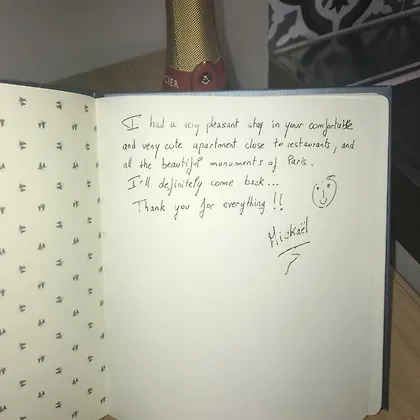 CIER
I had a very pleasant stay in your comfortable
and very cute apartment close to restaurants, and
all the beautiful monuments of Paris.
I'll definitely come back...
Thank you for everything !!
Mickaël